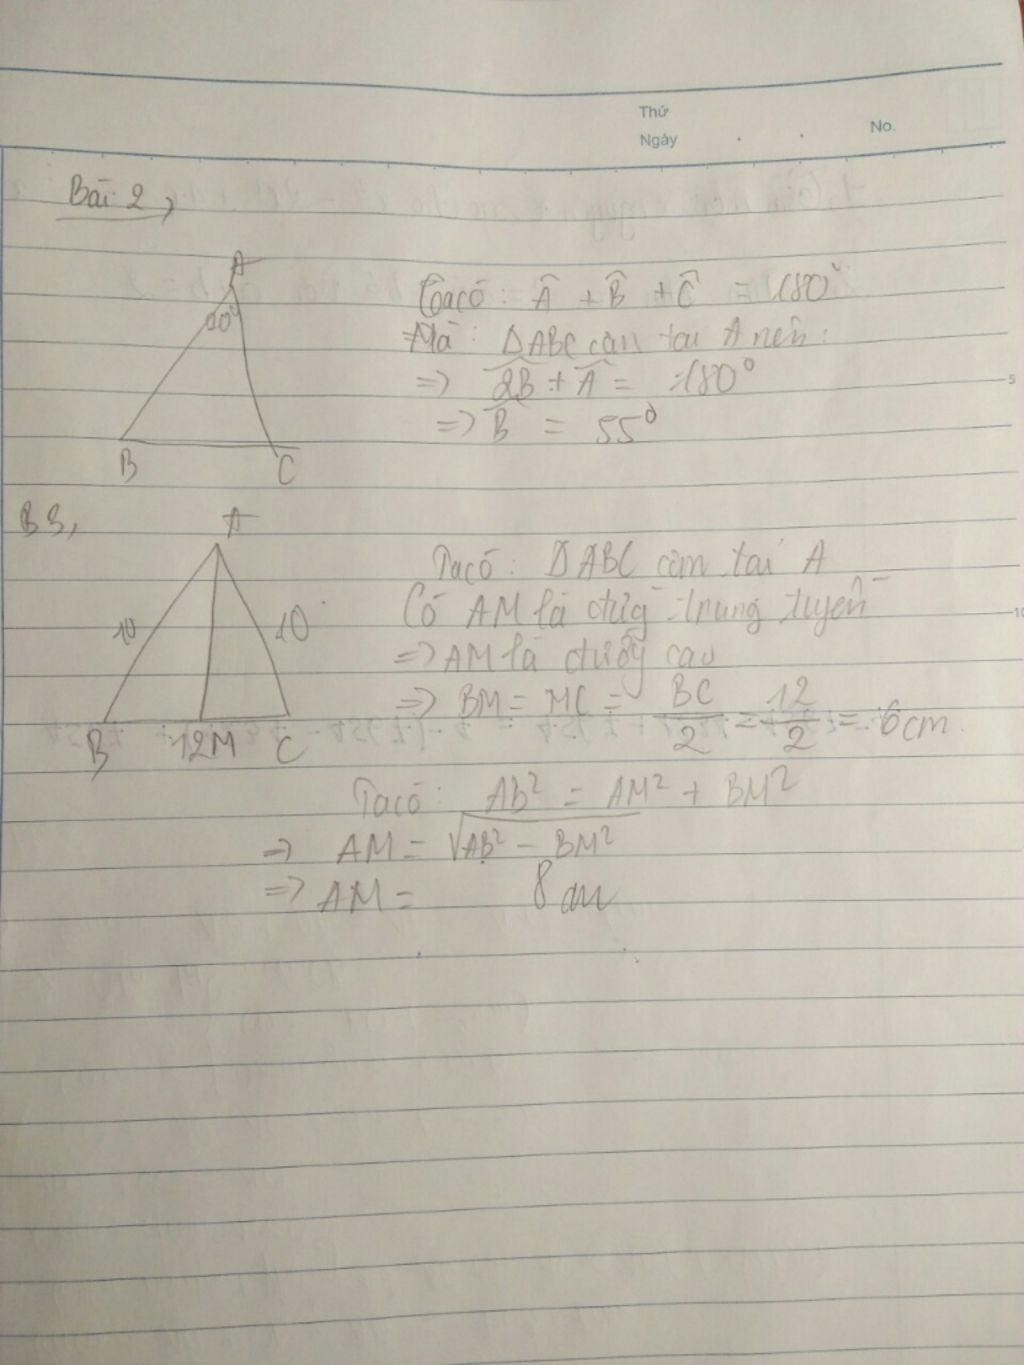 Thứ
Ngày
No.
Bài 2,
A
B
C
Ta có: Â + B̂ + Ĉ = 180°
Mà: ΔABC cân tại A nên:
=> 2B̂ + Â = 180°
=> B̂ = 55°
5
B3,
A
10
10
B
12M
C
Ta có: ΔABC cân tại A
Có AM là đường trung tuyến
10
=> AM là đường cao
=> BM = MC = BC/2 = 12/2 = 6cm
Ta có: AB² = AM² + BM²
=> AM = √AB² - BM²
=> AM = 8 cm